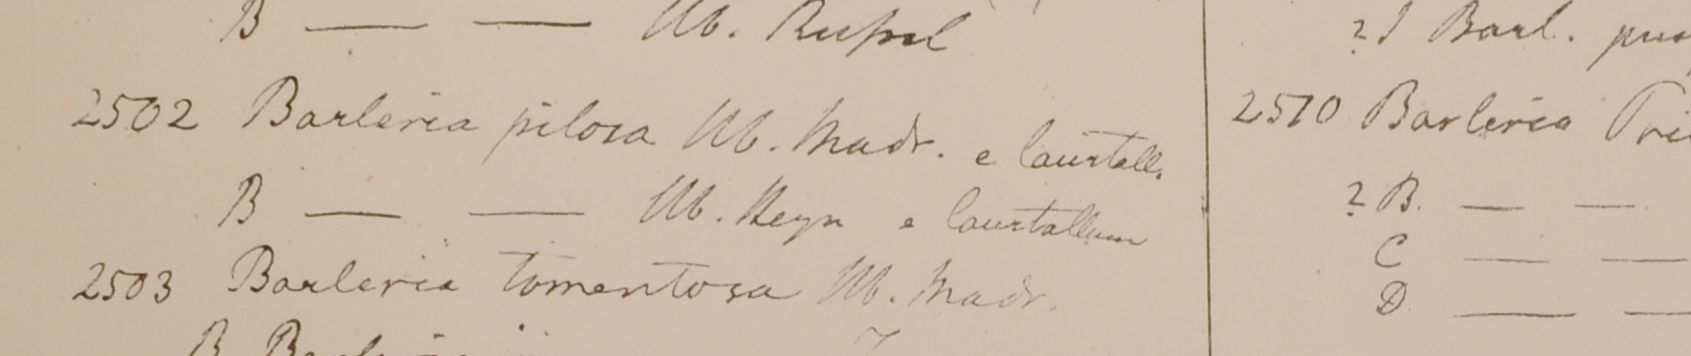 B — — Hb. Russel
2502 Barleria pilosa Hb. Madr. e Courtall.
B — — Hb. Heyn e Courtallum
2503 Barleria tomentosa Hb. Madr.
B
? Barl.
2510 Barleria
? B. — —
C — —
D — —